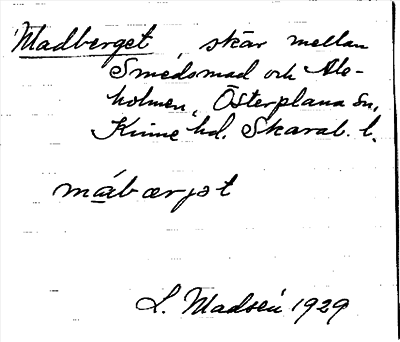 Madberget, skär mellan
Smedsmad och Ale-
holmen, Österplana sn,
Kinne hd. Skarab. l.
mábærjət
L. Madsén 1929